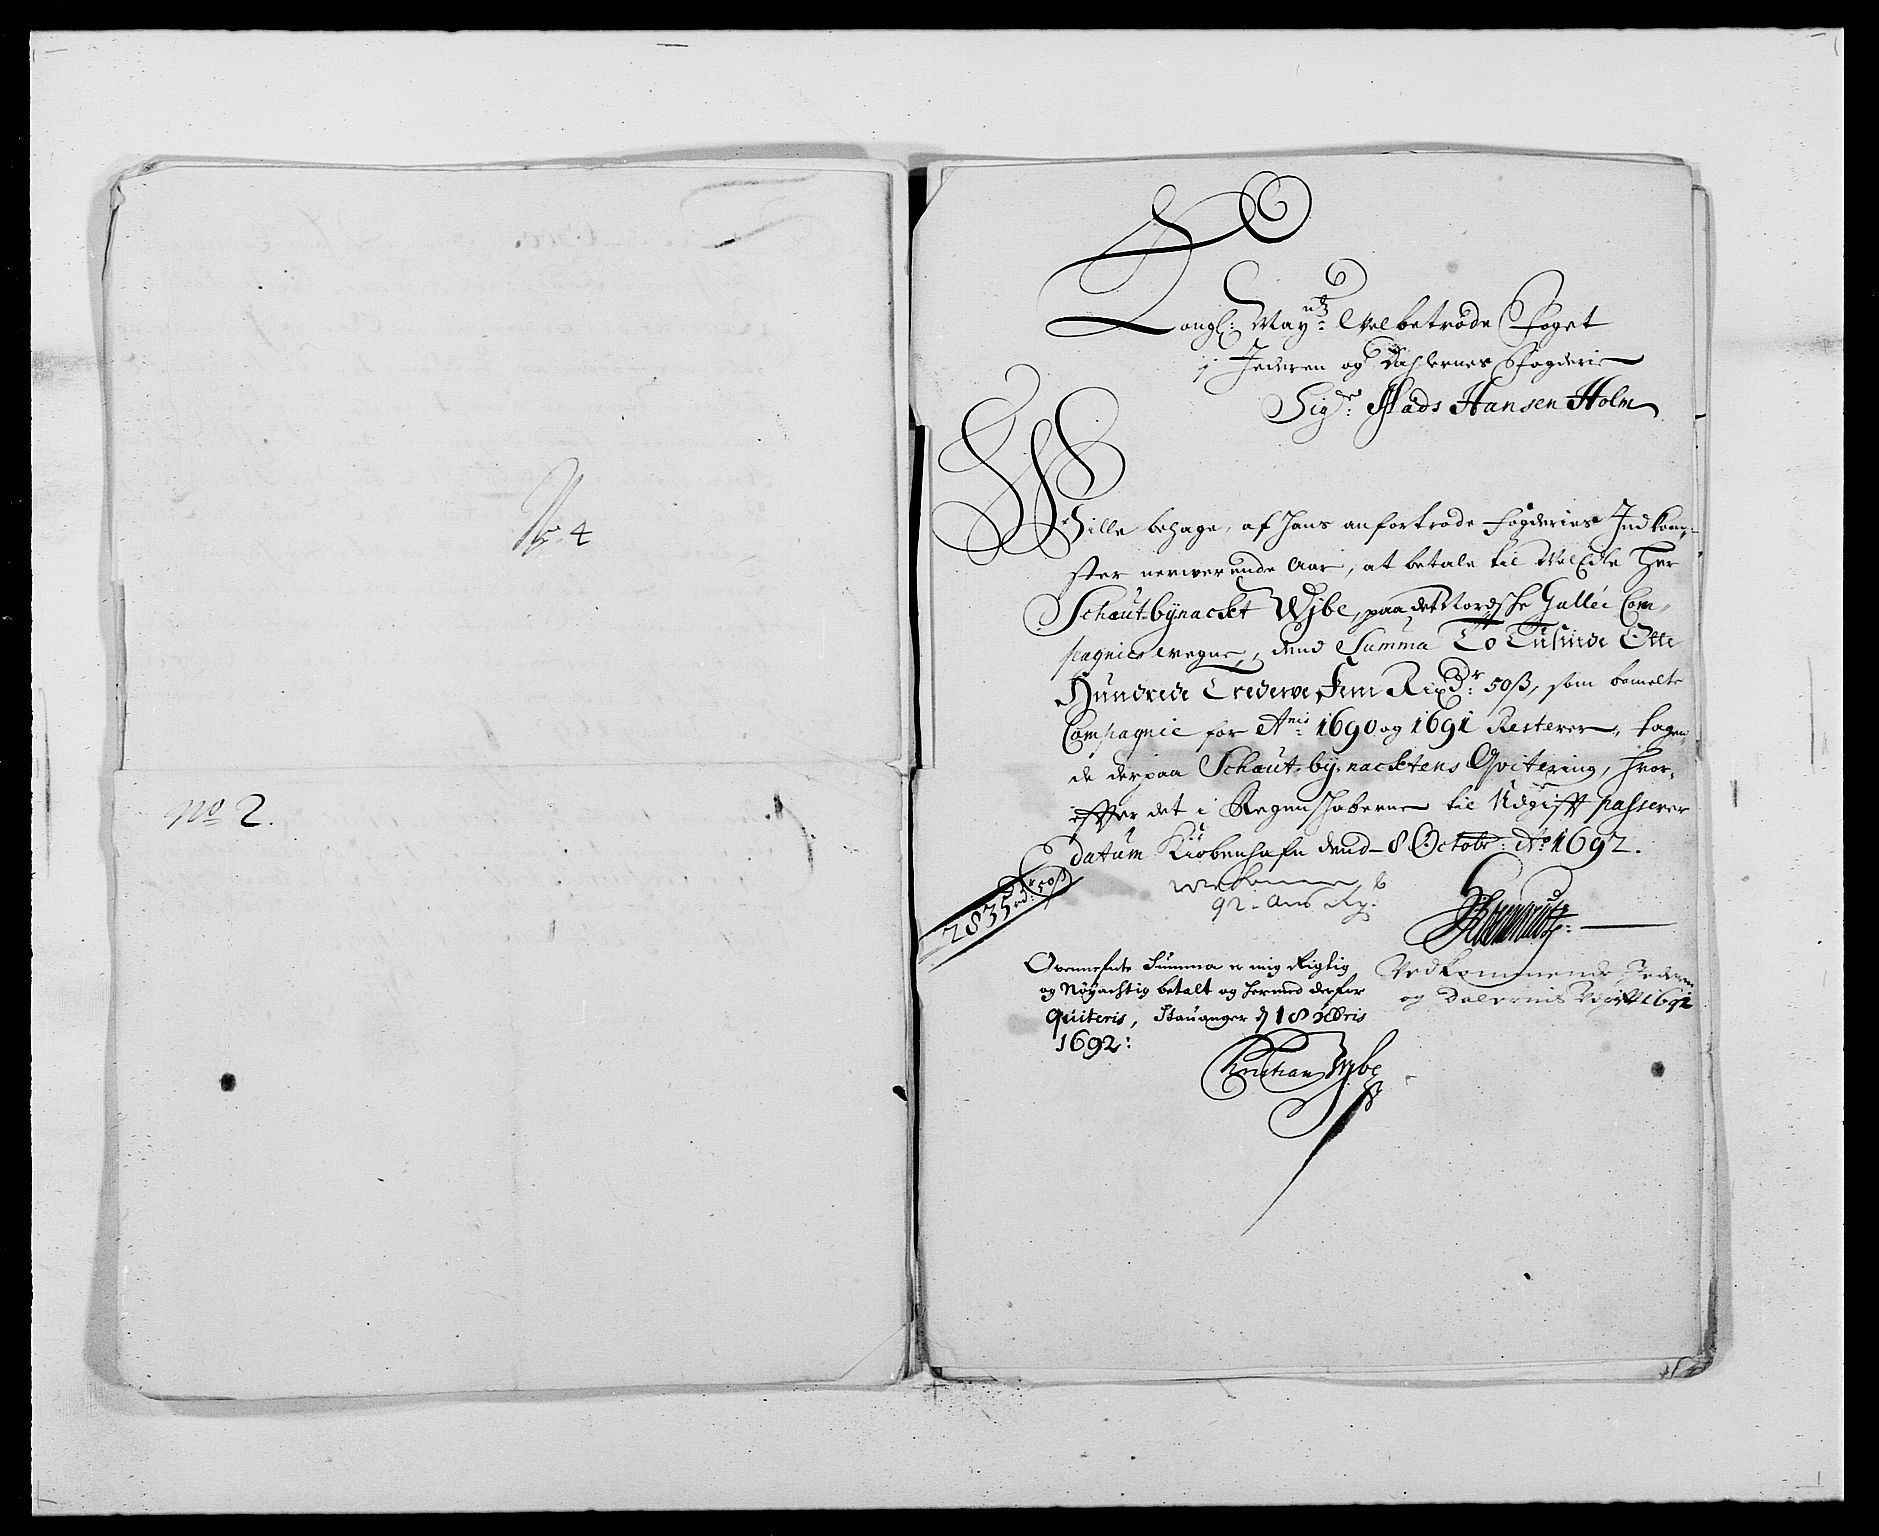 N. 4
No 2.
Kongl: Maytz Velbetrode Foget
i Jederen og Dahlernes Fogderie
Sigr: Mads Hansen Holm
Wille behage, af hans anfortrode fogderies Indkom-
ster nerwerende Aar, at betale til WelEdle Her
Schoutbynackt Wjbe, paa det Nordsche Galléi Com-
pagnies wegne, dend Summa To Tusinde Otte
Hundrede Tredeve Fem Rixdr: 50ß, som bemelte
Compagnie for Anis 1690 og 1691 Resterer, tagen-
de derpaa Schout-by-nacktens Qvitering, hvor-
effter det i Regenskaberne til Udgifft passerer
datum Kiöbenhafn dend 8 Octobr: Ao 1692.
2835 rdr: 50ß
92. Aars
Ovennefnte Summa er mig Rigtig
og Nöyachtig betalt og hermed derfor
Quiteris, Stauanger d 18 Xbris
1692:
Christian Wjbe
Vedkommende Jederen
og Dalernis 1692